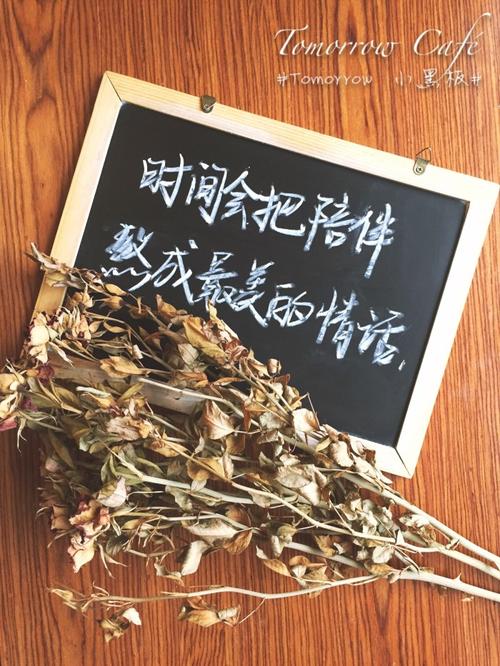 Tomorrow Café
#Tomorrow 小黑板#
时间会把陪伴
熬成最美的情话.